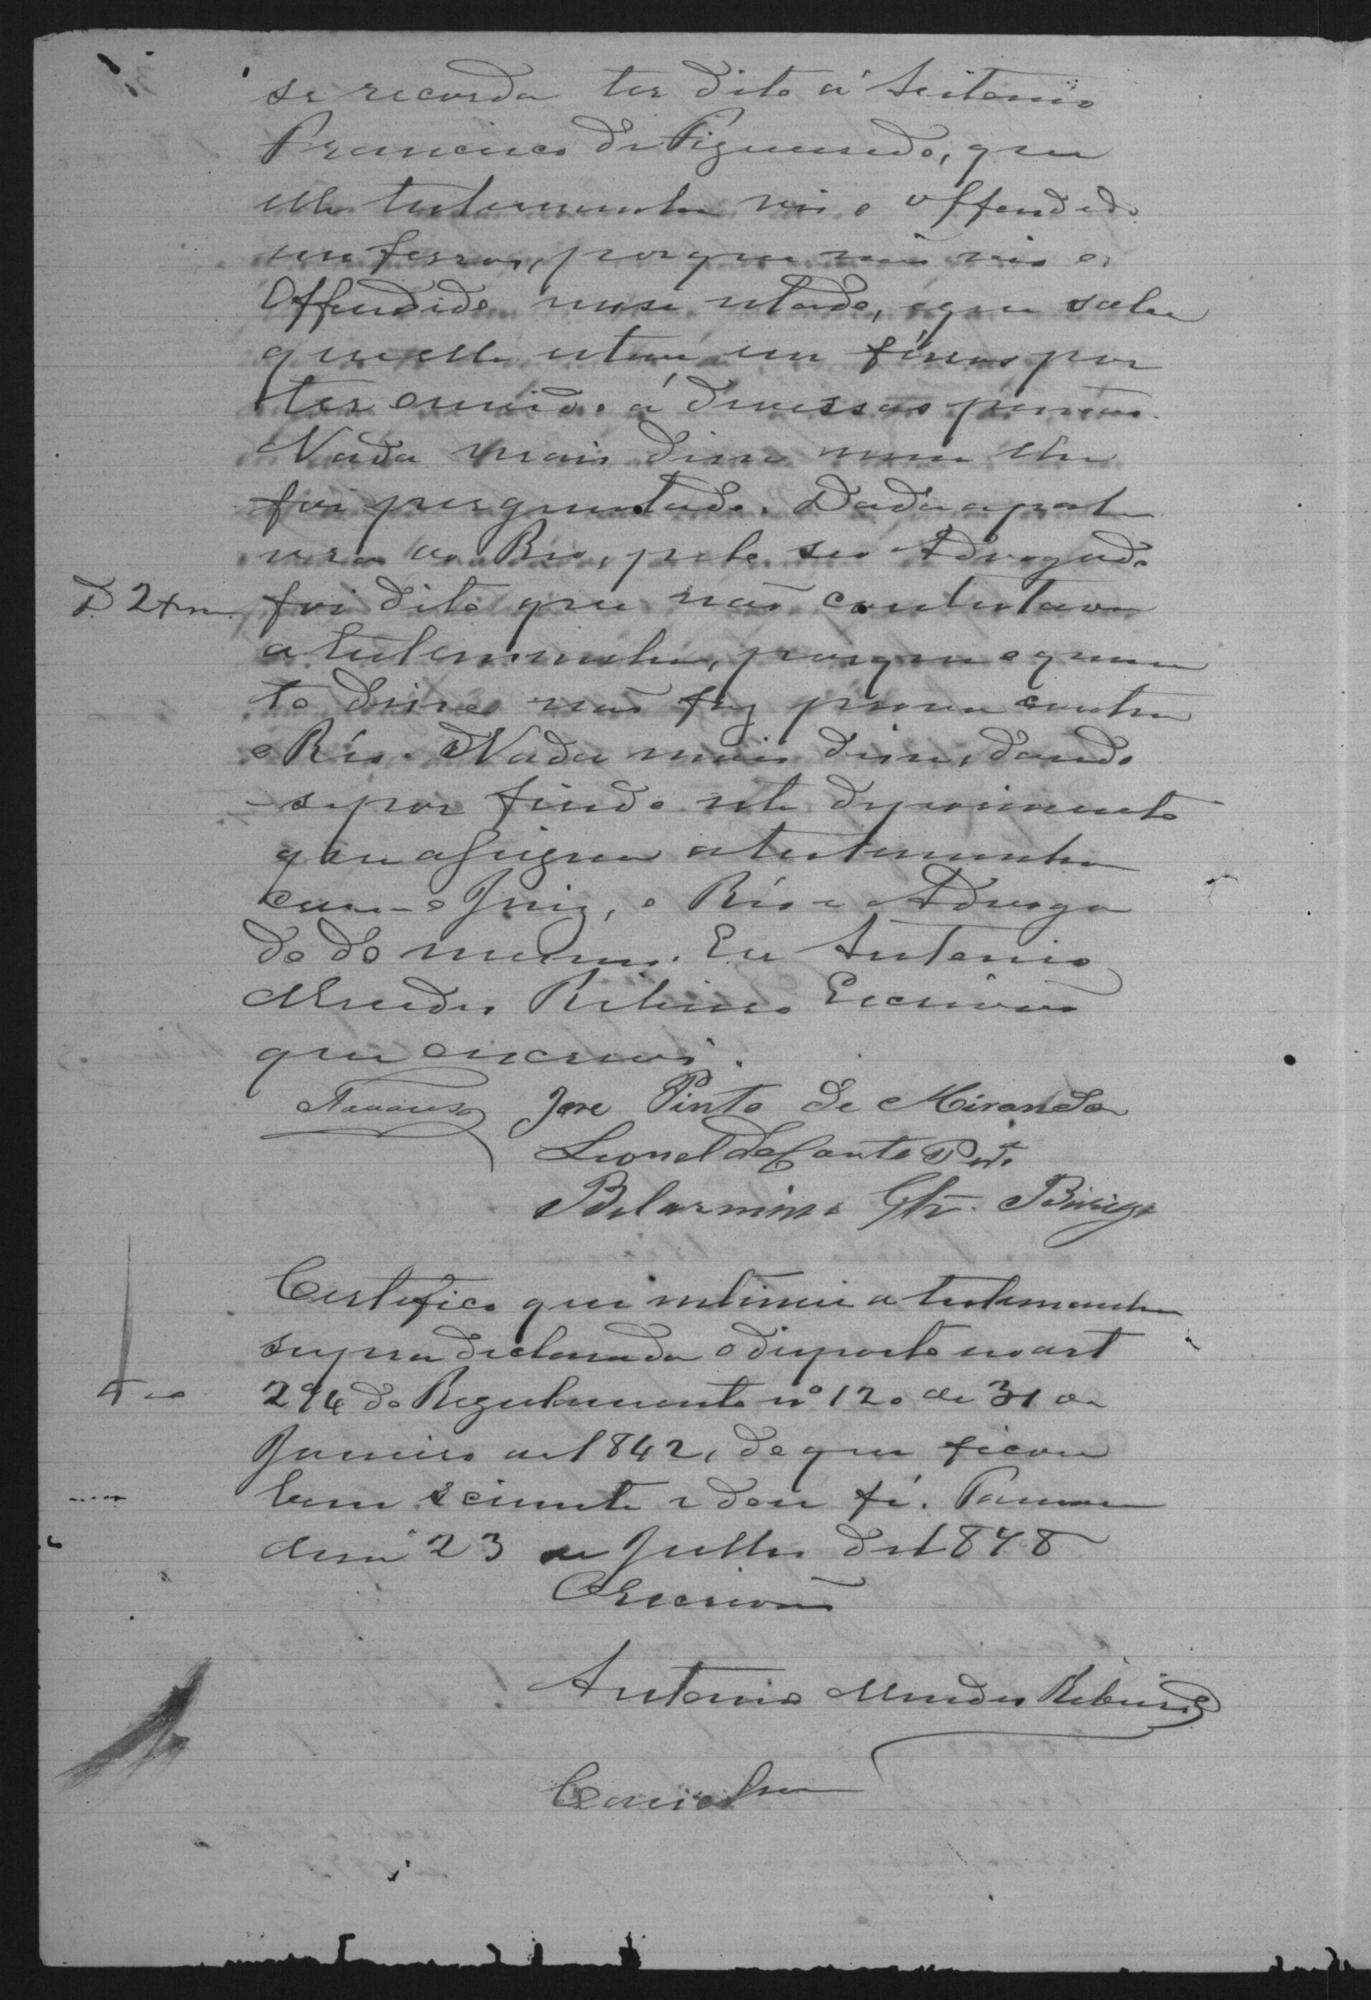 se recorda ter dito á Antonio
Francisco de Figueiredo, que
elle testemunha vio o offendido
em ferros, porque não vio o
Offendido nesse estado, e que sabe
que elle estava em ferros por
ter ouvido á diversas pessoas.
Nada mais disse nem lhe
foi perguntado. Dada a pala
vra ao Reo, pelo seo Advogado
foi dito que não contestava
a testemunha, porque o quan
to disse não faz prova contra
o Réo. Nada mais disse, dando
se por findo este depoimento
que assigna a testemunha
com o Juiz, o Réo e Advoga
do do mesmo. Eu Antonio
Mendes Ribeiro Escrivão
que o escrevi.
José Pinto de Miranda
Leonel do Couto
Belarmino
Certifico que intimei a testemunha
supra declarada o disposto no art
294 do Regulamento nº 120 de 31 de
Janeiro de 1842, de que ficou
bem sciente e dou fé.
23 de Julho de 1878
O Escrivão
Antonio Mendes Ribeiro